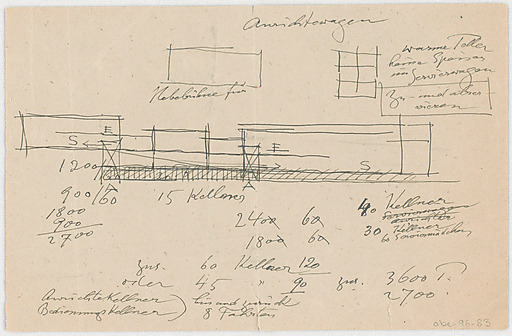 Anrichtewagen
warme Teller
keine Speisen
im Servierwagen
Zu- und abser-
vieren
Hebebühne für
S E E S
1200
A A
900/60 15 Kellner
1800
900
2700
2400 60
1800 60
40 Kellner
30 Kellner
zus. 60 Kellner 120
oder 45 " 90 zus. 3600 T.
2700
Anrichtekellner
Bedienungskellner
hin und zurück
8 Fahrten
obk-96-83